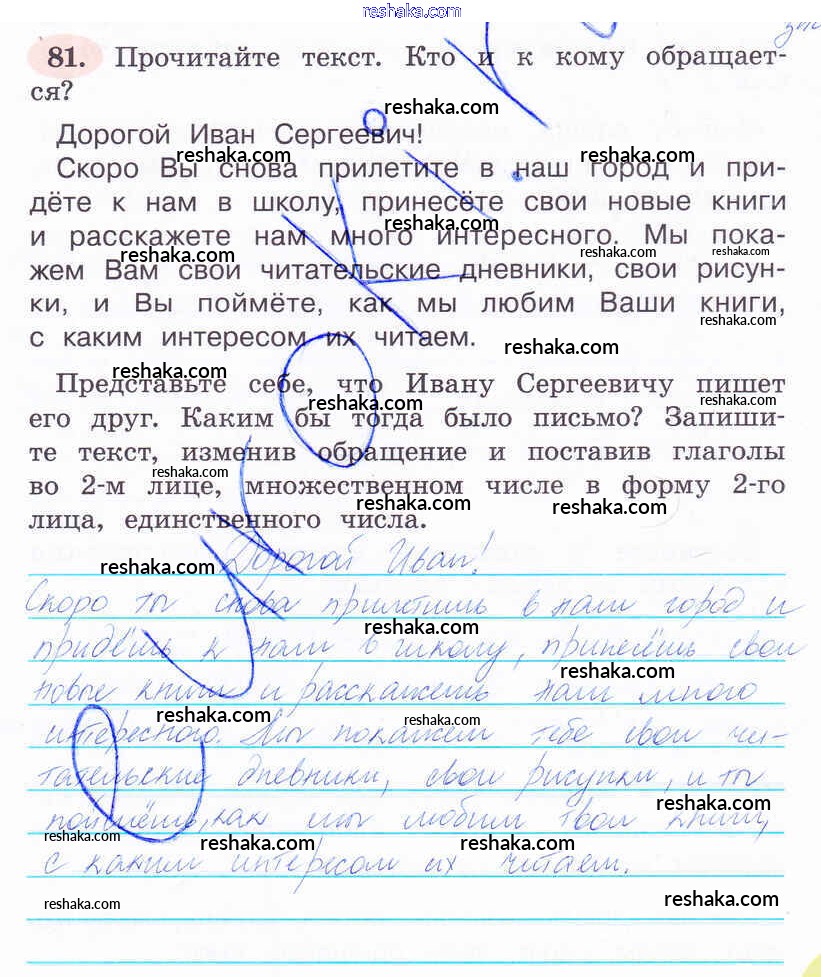 reshaka.com
81. Прочитайте текст. Кто и к кому обращает-
ся?
reshaka.com
Дорогой Иван Сергеевич!
reshaka.com reshaka.com
Скоро Вы снова прилетите в наш город и при-
дёте к нам в школу, принесёте свои новые книги
reshaka.com reshaka.com
и расскажете нам много интересного. Мы пока-
reshaka.com reshaka.com reshaka.com
жем Вам свои читательские дневники, свои рисун-
ки, и Вы поймёте, как мы любим Ваши книги,
reshaka.com
с каким интересом их читаем.
reshaka.com
reshaka.com
Представьте себе, что Ивану Сергеевичу пишет
reshaka.com reshaka.com
его друг. Каким бы тогда было письмо? Запиши-
те текст, изменив обращение и поставив глаголы
reshaka.com
во 2-м лице, множественном числе в форму 2-го
reshaka.com reshaka.com
лица, единственного числа.
Дорогой Иван!
reshaka.com reshaka.com
Скоро ты снова прилетишь в наш город и
reshaka.com
придёшь к нам в школу, принесёшь свои
reshaka.com
новые книги и расскажешь нам много
reshaka.com reshaka.com
интересного. Мы покажем тебе свои чи-
тательские дневники, свои рисунки, и ты
reshaka.com
поймёшь, как мы любим твои книги,
reshaka.com reshaka.com reshaka.com
с каким интересом их читаем.
reshaka.com reshaka.com